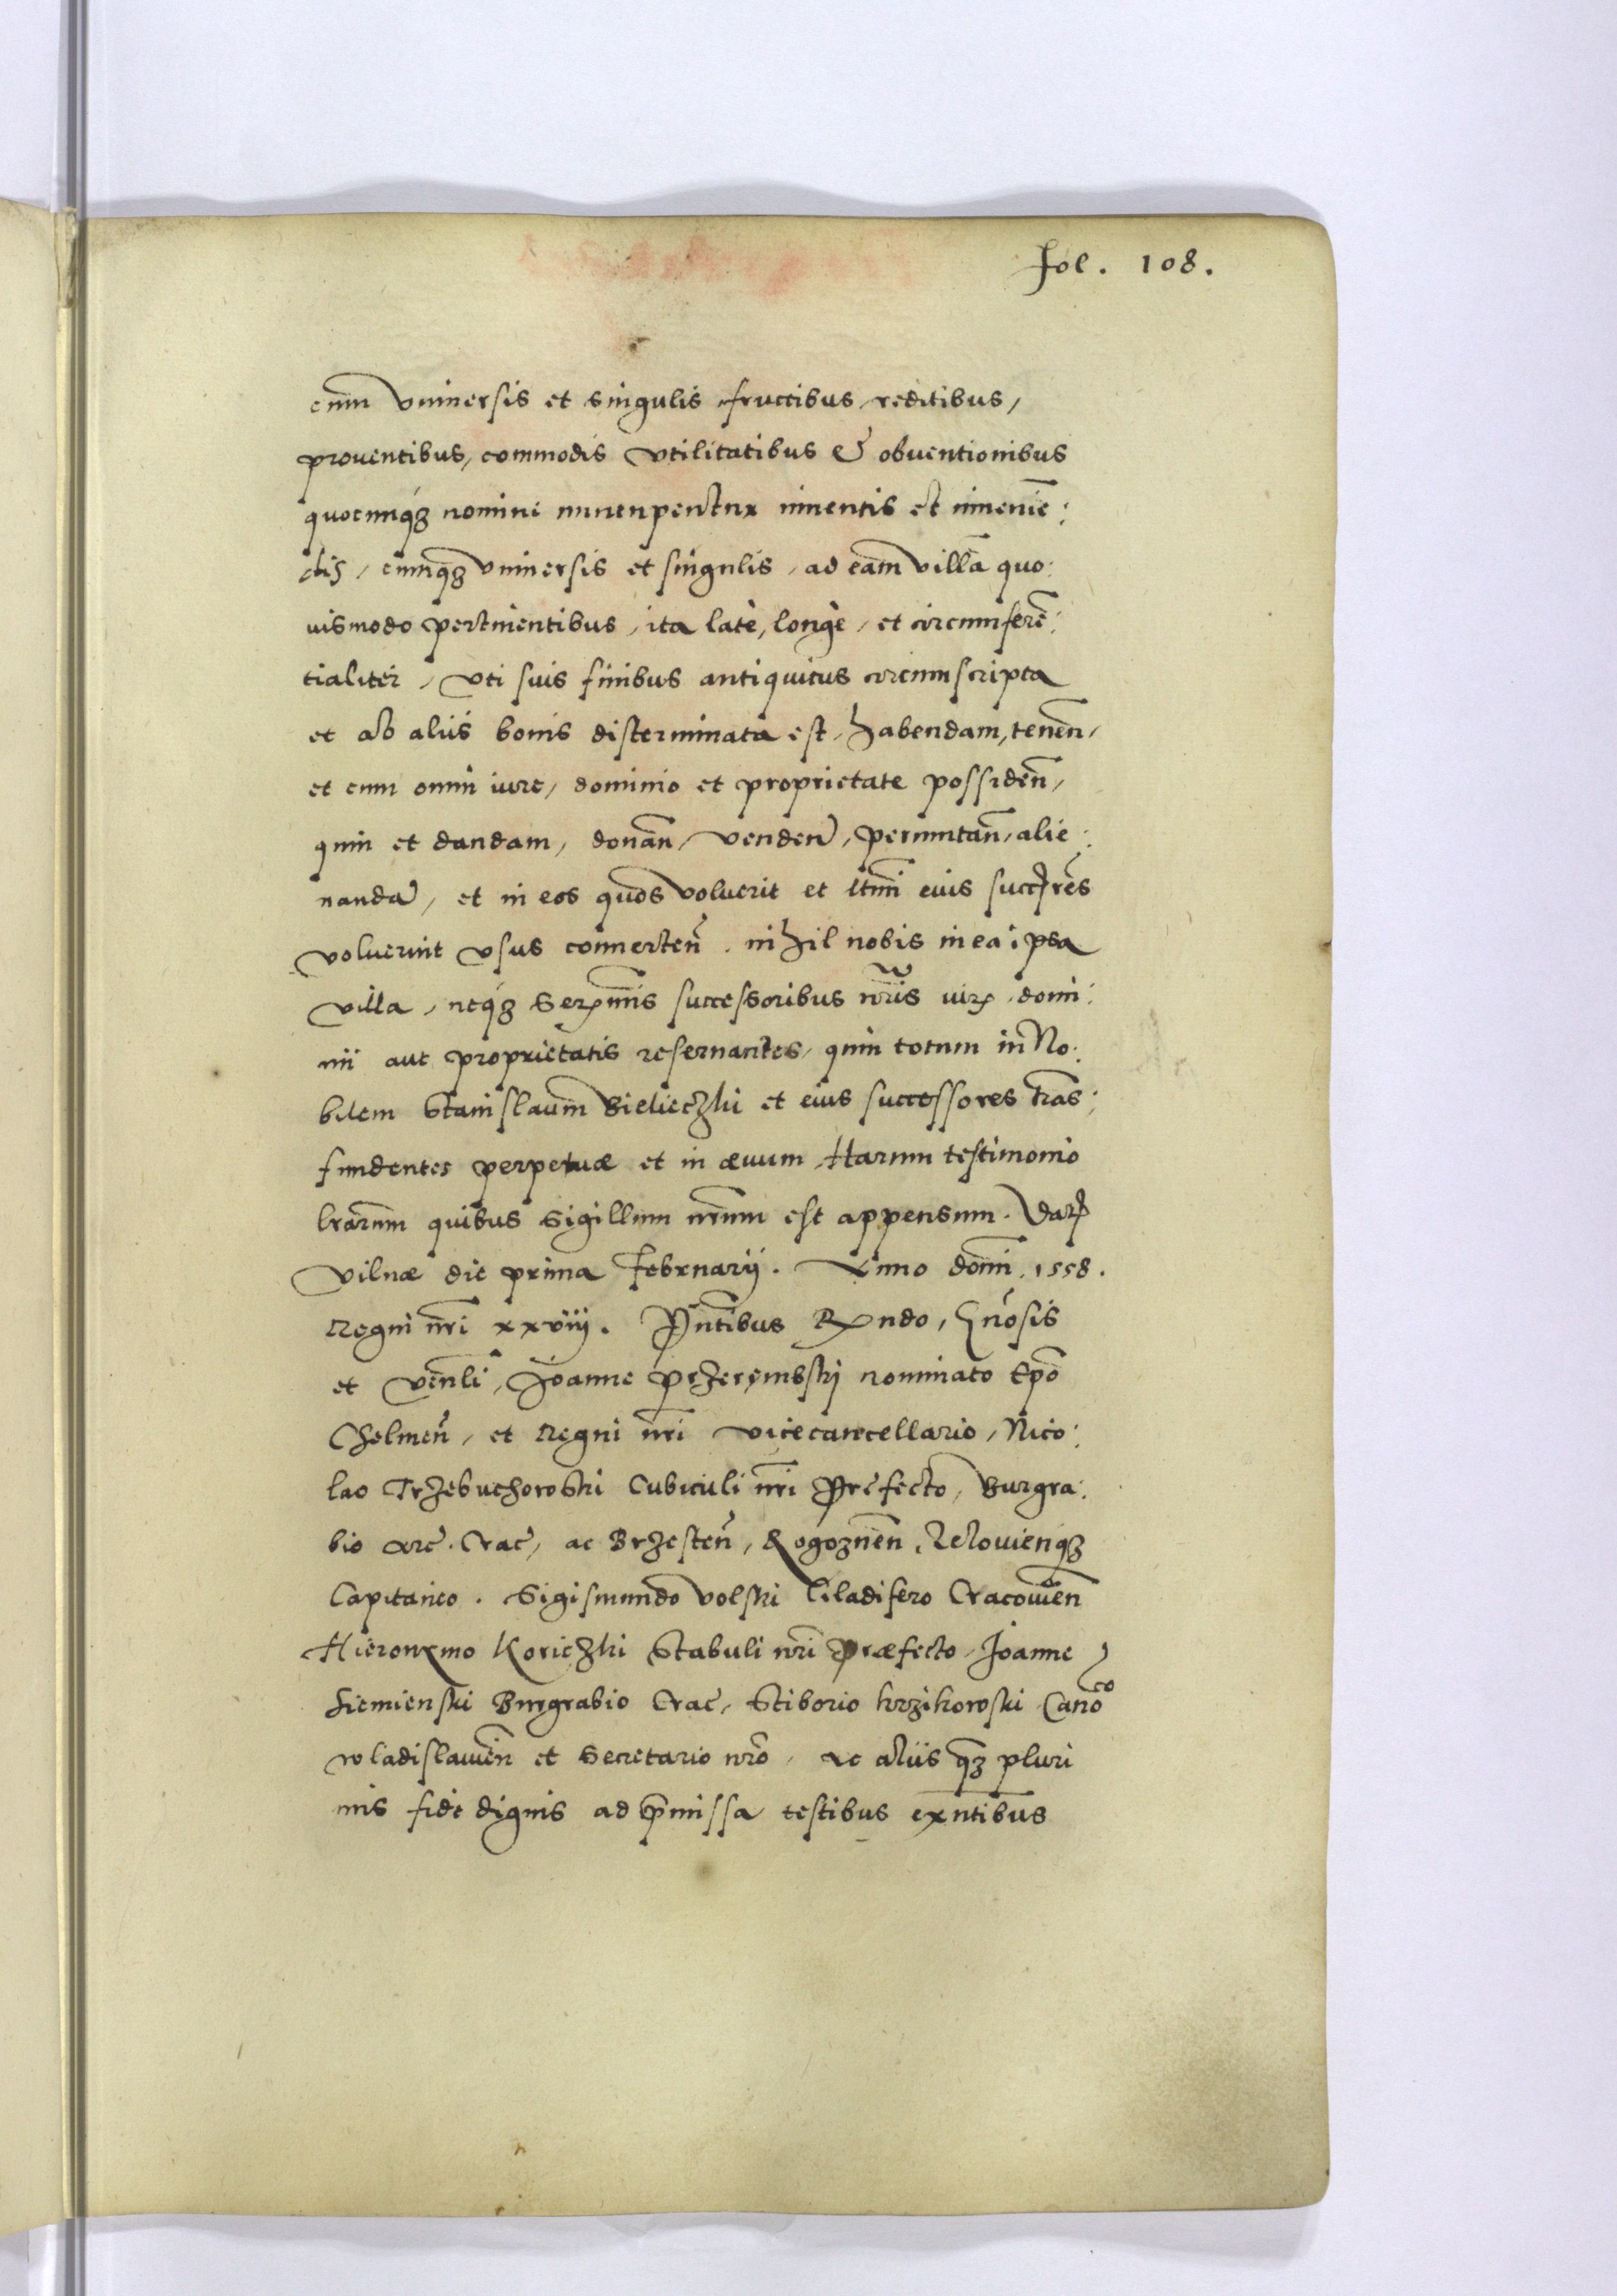 fol. 108.
cum vniuersis et singulis fructibus, reditibus,
prouentibus, commodis vtilitatibus & obuentionibus
quocunq́ꝫ nomine nuncupentur inuentis et inueniē:
dis, cumq́ꝫ vniuersis et singulis, ad eam villā quo:
uismodo pertinentibus, ita latè, longè, et circumferē:
tialiter, vti suis finibus antiquitus circumscripta
et ab aliis bonis disterminata est, habendam, tenen̄,
et cum omni iure, dominio et proprietate possiden̄,
quin et dandam, donan̄, venden̄, permutan̄, alie:
nandā, et in eos quos voluerit et ltmi eius succr̄es
voluerint vsus conuerten̄. nihil nobis in ea ipsa
villa, neq́ꝫ Serꝫmis successoribus nr̄is iurꝭ, domi:
nii aut proprietatis reseruantes, quin totum in No:
bilem Stanislaum Bielieczki et eius successores trās:
fundentes perpetuæ et in æuum, Harum testimonio
lrārum quibus sigillum nrūm est appensum. Datꝭ
Vilnæ die prima Februarij. Anno domī. 1558.
Regni nrī xxviij. Pn̄tibus Rꝫndo, Gn̄osis
et Ven̄li, Joanne Przerembskj nominato Epō
Chelmen̄, et Regni nrī vicecancellario, Nico:
lao Trzebuchowski Cubiculi nrī Prefecto, Burgra:
bio arc. Crac, ac Brzesten̄, Rogoznen̄, Lelouienq́ꝫ
Capitaneo. Sigismundo Volski Gladifero Cracouien̄
Hieronymo Korieczki Stabuli nrī Præfecto, Joanne
Siemienski Burgrabio Crac, Stiborio krzikowski Canōco
wladislauien̄ et Secretario nrō, ac aliis q̄ꝫ pluri
mis fide dignis ad p̄missa testibus exn̄tibus